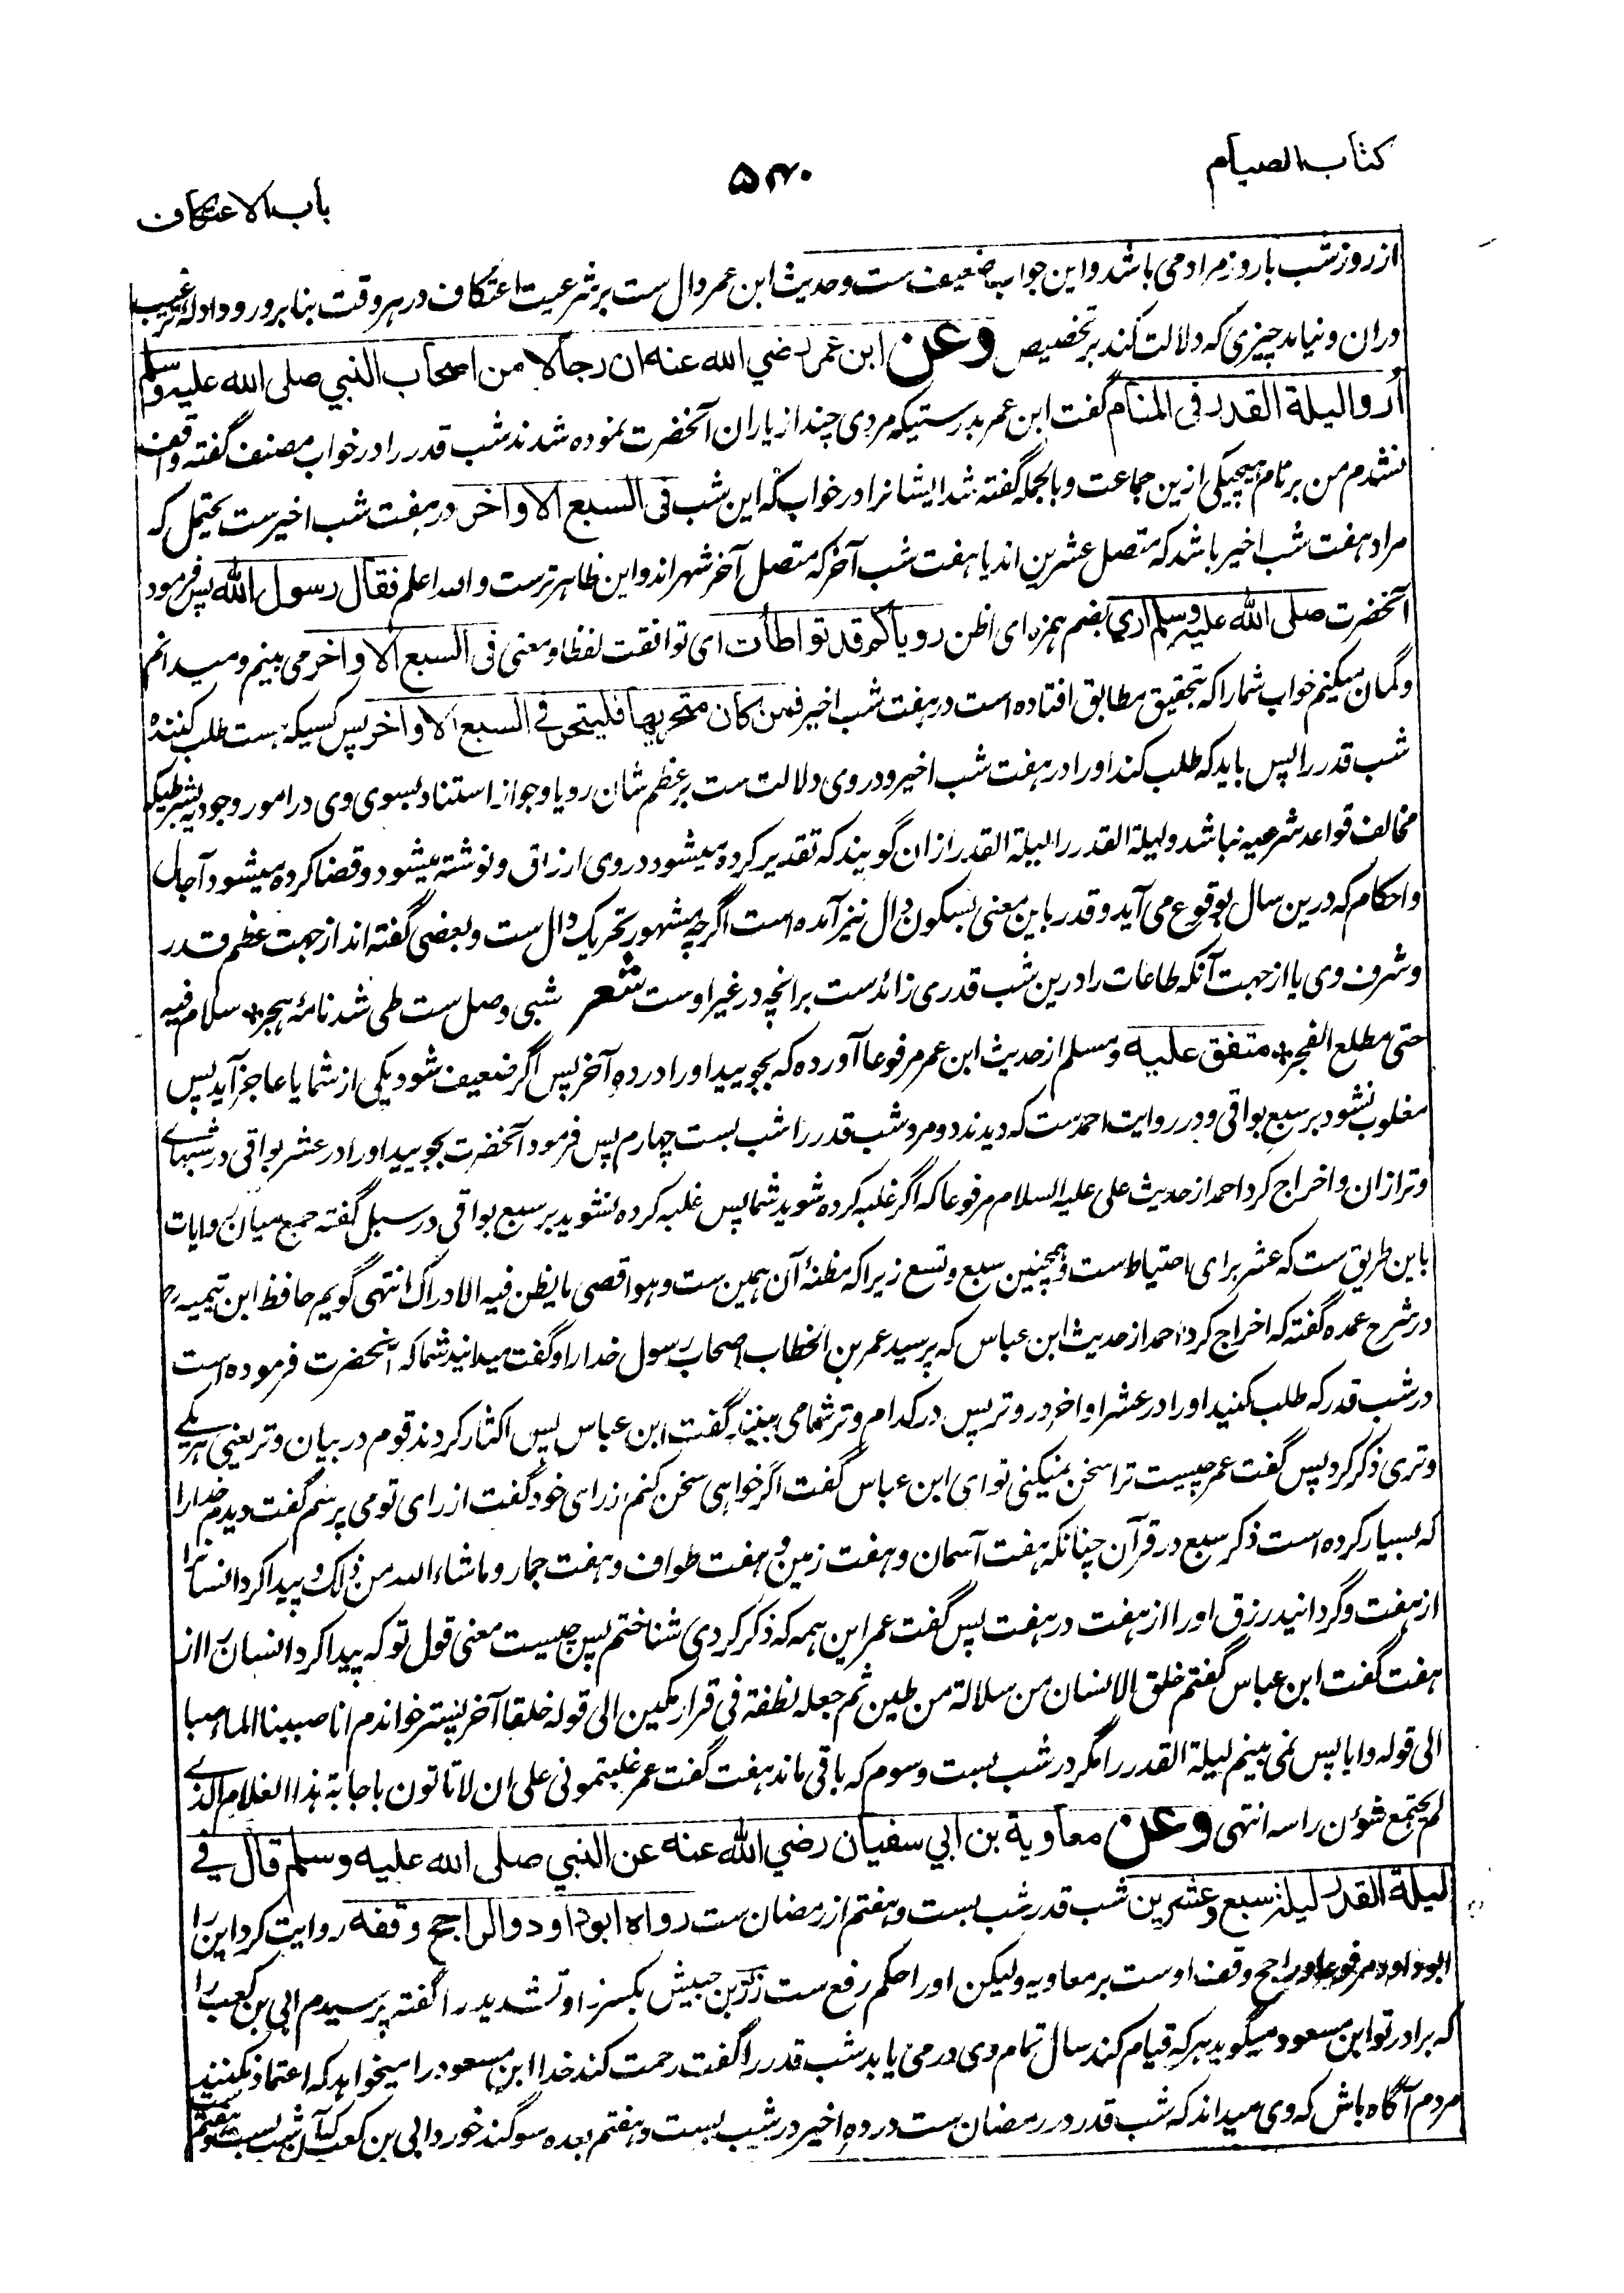 كتاب الصيام
۵۴۰
باب الاعتكاف
از روز شب با روز مراد می باشد و این جواب ضعیف ست و حدیث ابن عمر دال ست بر شرعیت اعتکاف در هر وقت بنابر ورود ادله ترغیب
دران و نیامد چیزی که دلالت کند بر تخصیص وعن ابن عمر رضي الله عنه ان رجالا من اصحاب النبي صلى الله عليه وسلم
أروا ليلة القدر في المنام گفت ابن عمر بدرستیکه مردی چند از یاران آنحضرت نموده شدند شب قدر را در خواب مصنف گفته واقف
نشدم من بر نام هیچیکی ازین جماعت و بالجمله گفته شد ایشانرا در خواب که این شب في السبع الاواخر در هفت شب اخیر ست یحتمل که
مراد هفت شب اخیر باشد که متصل عشرین اند یا هفت شب آخر که متصل آخر شهر اند و این ظاهر ترست و الله اعلم فقال رسول الله پس فرمود
آنحضرت صلى الله عليه وسلم اري بضم همزه ای اظن روياكم قد تواطأت ای توافقت لفظا و معنی في السبع الاواخر می بینم و میدانم
و گمان میکنم خواب شما را که بتحقیق مطابق افتاده است در هفت شب اخیر فمن كان متحريها فليتحرها في السبع الاواخر پس کسیکه هست طلب کننده
شب قدر را پس باید که طلب کند او را در هفت شب اخیر و در وی دلالت ست بر عظم شان رویا و جواز استناد بسوی وی در امور وجودیه بشرطیکه
مخالف قواعد شرعیه نباشد و لیلة القدر را لیلة القدر ازان گویند که تقدیر کرده میشود در وی ارزاق و نوشته میشود و قضا کرده میشود آجال
و احکام که درین سال بوقوع می آید و قدر باین معنی بسکون دال نیز آمده است اگرچه مشهور تحریک دال ست و بعضی گفته اند از جهت عظم قدر
و شرف وی یا از جهت آنکه طاعات را درین شب قدری زائد ست بر انچه در غیر اوست شعر شبی وصل ست طی شد نامه هجر * سلام فیه
حتی مطلع الفجر * متفق عليه و مسلم از حدیث ابن عمر مرفوعا آورده که بجویید او را در ده آخر پس اگر ضعیف شود یکی از شما یا عاجز آید پس
مغلوب نشود بر سبع بواقی و در روایت احمد ست که دیدند دو مرد شب قدر را شب بست چهارم پس فرمود آنحضرت بجویید او را در عشر بواقی در شبهای
وتر ازان و اخراج کرد احمد از حدیث علی علیه السلام مرفوعا که اگر غلبه کرده شوید شما پس غلبه کرده نشوید بر سبع بواقی در سبل گفته جمع میان روایات
باین طریق ست که عشر برای احتیاط ست و همچنین سبع و تسع زیرا که مظنه آن همین ست و هو اقصی ما یظن فیه الادراک انتهی گویم حافظ ابن تیمیه رح
در شرح عمده گفته که اخراج کرد احمد از حدیث ابن عباس که پرسید عمر بن الخطاب اصحاب رسول خدا را و گفت میدانید شما که آنحضرت فرموده است
در شب قدر که طلب کنید او را در عشر اواخر در وتر پس در کدام وتر شما می بینید گفت ابن عباس پس اکثار کردند قوم در بیان وتر یعنی هر یکے
وتری ذکر کرد پس گفت عمر چیست ترا سخن نمیکنی تو ای ابن عباس گفت اگر خواهی سخن کنم از رای خود گفت از رای تو می پرسم گفت دیدم خدا را
که بسیار کرده است ذکر سبع در قرآن چنانکه هفت آسمان و هفت زمین و هفت طواف و هفت جمار و ما شاء الله من ذلک و پیدا کرد انسان را
از هفت و گردانید رزق او را از هفت در هفت پس گفت عمر این همه که ذکر کردی شناختم پس چیست معنی قول تو که پیدا کرد انسان را از
هفت گفت ابن عباس گفتم خلق الانسان من سلالة من طين ثم جعله نطفة في قرار مكين الى قوله خلقا آخر پستر خواندم انا صببنا الماء صبا
الى قوله وابا پس نمی بینم لیلة القدر را مگر در شب بست و سوم که باقی ماند هفت گفت عمر غلبتموني على ان لا تاتون باجابة هذا الغلام الذے
لم يجتمع شؤن راسه انتهی وعن معاوية بن ابي سفيان رضي الله عنه عن النبي صلى الله عليه وسلم قال في
ليلة القدر ليلة سبع وعشرين شب قدر شب بست و هفتم از رمضان ست رواه ابو داود والراجح وقفه روایت کرد این را
ابو داود مرفوعا و راجح وقف اوست بر معاویه و لیکن او را حکم رفع ست زر بن حبیش بکسر زا و تشدید را گفته پرسیدم ابی بن کعب را
که برادر تو ابن مسعود میگوید هر که قیام کند سال تمام وی در می یابد شب قدر را گفت رحمت کند خدا ابن مسعود را میخواهد که اعتماد نکنند
مردم آگاه باش که وی میداند که شب قدر در رمضان ست در ده اخیر در شب بست و هفتم بعده سوگند خورد ابی بن کعب که آن شب بست و هفتم ست